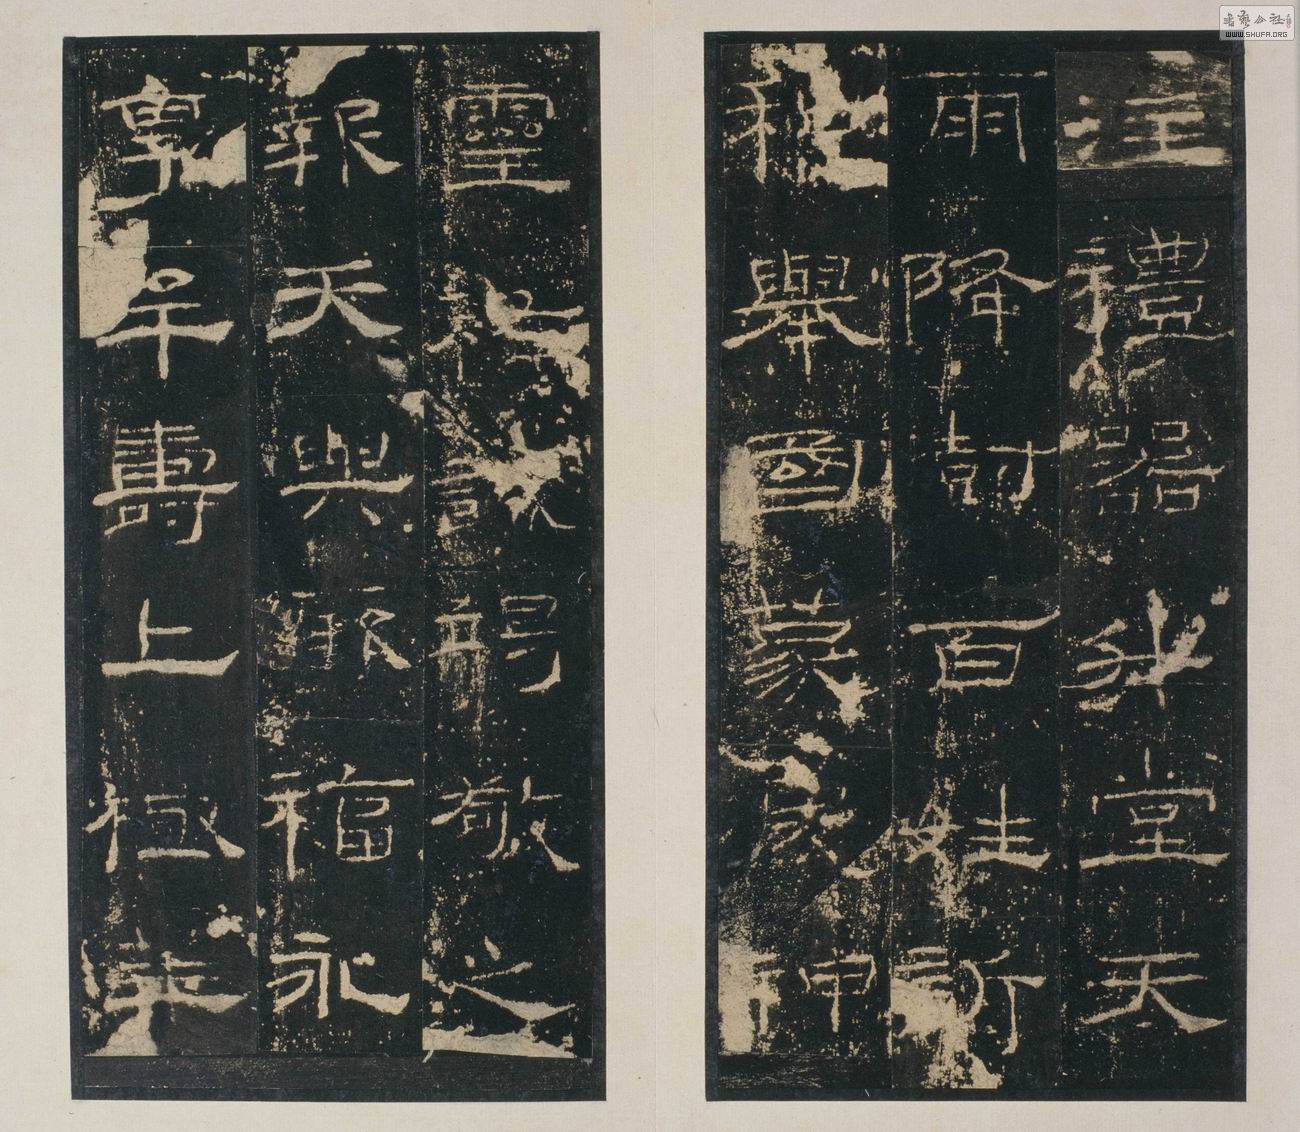 注禮器升堂天
雨降澍百姓訢
和舉國蒙慶神
靈祐誠竭敬之
報天與厥福永
享牟壽上極華
書藝公社
WWW.SHUFA.ORG